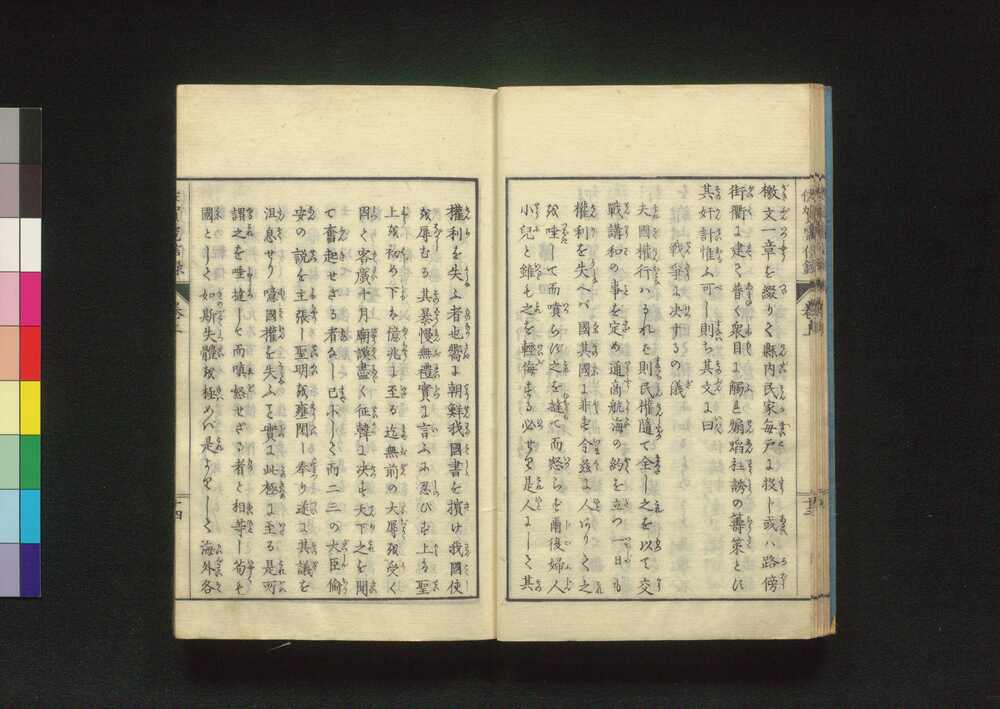 檄文一章を綴りて縣内民家每戸に投し或ハ路傍
街衢に建て普く衆目に觸し煽蹈社謗の籌策とに
其奸計惟ふ可し則ち其文に曰
戰爭に决するの儀
夫國權行ハるれハ則民權隨て全し之を以て交
戰講和の事を定め通商航海の約を立つ一日も
權利を失へバ國其國に非も今茲に人ありて之
を唾して而噴らハ之を撻て而怒らを爾後婦人
小兒と雖も之を輕侮する必せり是人にして其
十三
權利を失ふ者也嚮に朝鮮我國書を擯け我國使
を辱むる其暴慢無禮實に言ふに忍びも上を聖
上を初め下も億兆に至る迄無前の大辱を受く
因て客歳十月廟謨盡く征韓に决も天下之を聞
て奮起せざる者なし已にして而二三の大臣偷
安の説を主張し聖明を雍閉し奉り遂に其議を
沮息せり噫國權を失ふを實に此極に至る是所
謂之を唾撻して而噴怒せざる者と相等し苟も
國として如斯失體を極めバ是よりして海外各
十四